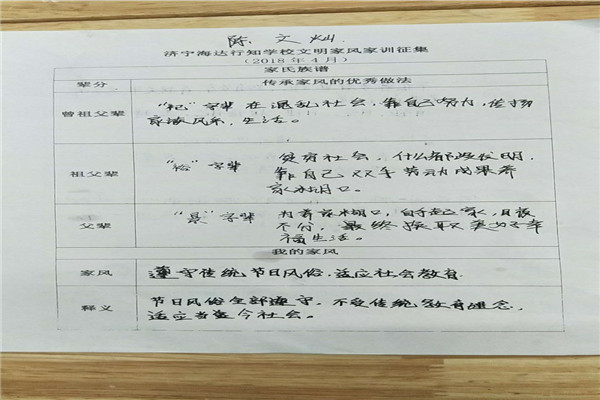 陈文灿
济宁海达行知学校文明家风家训征集
（2018年4月）
家氏族谱
辈分 传承家风的优秀做法
曾祖父辈 "祀"字辈 在混乱社会，靠自己努力，传扬
家族风采，生活。
祖父辈 "裕"字辈 没有社会，什么都没发明，
靠自己双手劳动成果养
家糊口。
父辈 "景"字辈 为着家糊口，白手起家，日夜
不分，最终换取美好幸
福生活。
我的家风
家风 遵守传统节日风俗，适应社会教育
释义 节日风俗全部遵守，不受传统教育理念，
适应者当今社会。